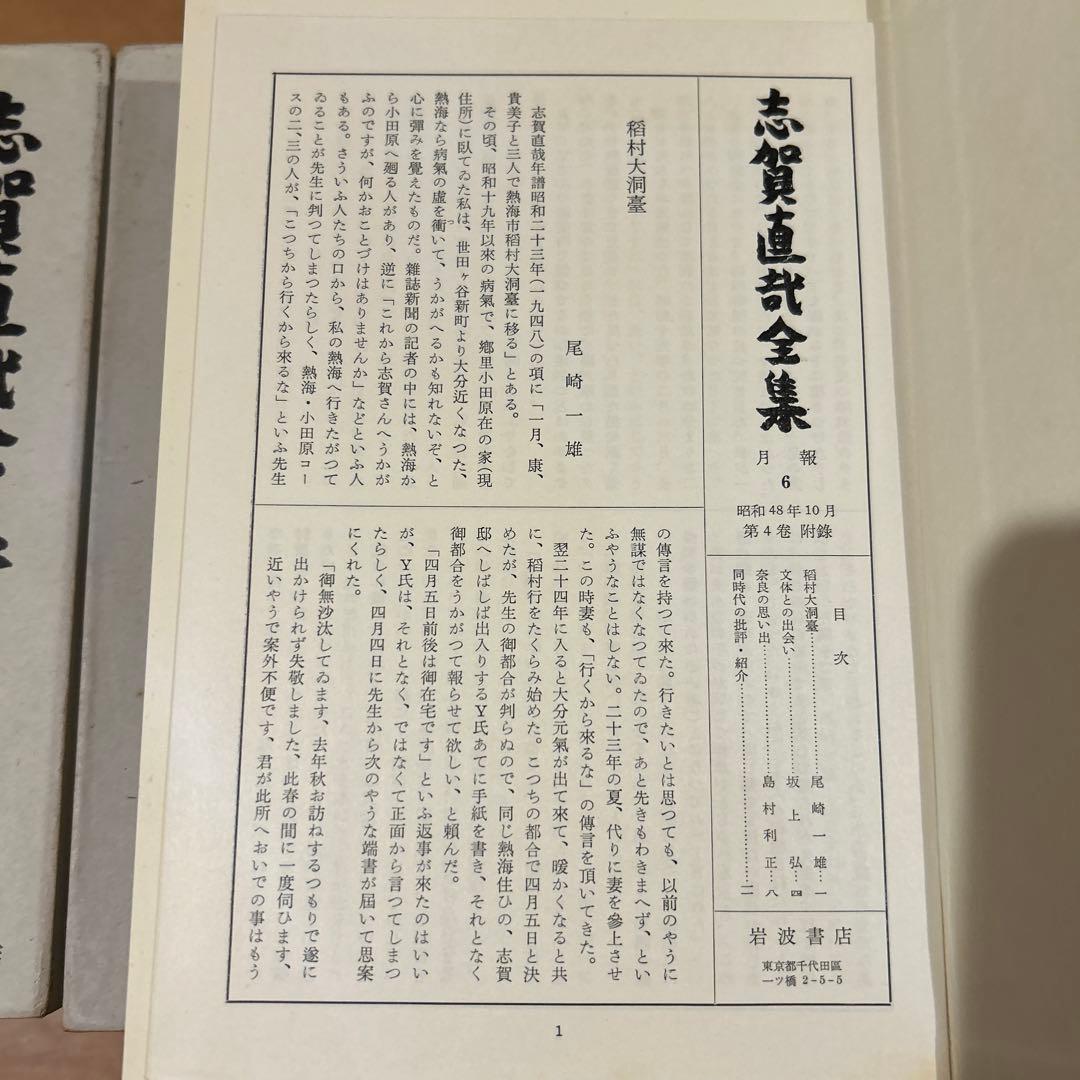 志賀直哉全集
月報
6
昭和48年10月
第4巻 附錄
目次
稻村大洞臺……尾崎一雄…一
文体との出会い……坂上弘…四
奈良の思い出……島村利正…八
同時代の批評・紹介……一二
岩波書店
東京都千代田區
一ツ橋 2-5-5
稻村大洞臺
尾崎一雄
志賀直哉年譜昭和二十三年(一九四八)の項に「一月、康、
貴美子と三人で熱海市稻村大洞臺に移る」とある。
その頃、昭和十九年以來の病氣で、鄕里小田原在の家(現
住所)に臥てゐた私は、世田ヶ谷新町より大分近くなつた、
熱海なら病氣の虛を衝いて、うかがへるかも知れないぞ、と
心に彈みを覺えたものだ。雜誌新聞の記者の中には、熱海か
ら小田原へ廻る人があり、逆に「これから志賀さんへうかが
ふのですが、何かおことづけはありませんか」などといふ人
もある。さういふ人たちの口から、私の熱海へ行きたがつて
ゐることが先生に判つてしまつたらしく、熱海・小田原コー
スの二、三の人が、「こつちから行くから來るな」といふ先生
の傳言を持つて來た。行きたいとは思つても、以前のやうに
無謀ではなくなつてゐたので、あと先きもわきまへず、とい
ふやうなことはしない。二十三年の夏、代りに妻を參上させ
た。この時妻も、「行くから來るな」の傳言を頂いてきた。
翌二十四年に入ると大分元氣が出て來て、暖かくなると共
に、稻村行をたくらみ始めた。こつちの都合で四月五日と決
めたが、先生の御都合が判らぬので、同じ熱海住ひの、志賀
邸へしばしば出入りするY氏あてに手紙を書き、それとなく
御都合をうかがつて報らせて欲しい、と賴んだ。
「四月五日前後は御在宅です」といふ返事が來たのはいい
が、Y氏は、それとなく、ではなくて正面から言つてしまつ
たらしく、四月四日に先生から次のやうな端書が届いて思案
にくれた。
「御無沙汰してゐます、去年秋お訪ねするつもりで遂に
出かけられず失敬しました、此春の間に一度伺ひます、
近いやうで案外不便です、君が此所へおいでの事はもう
1
志賀直哉全